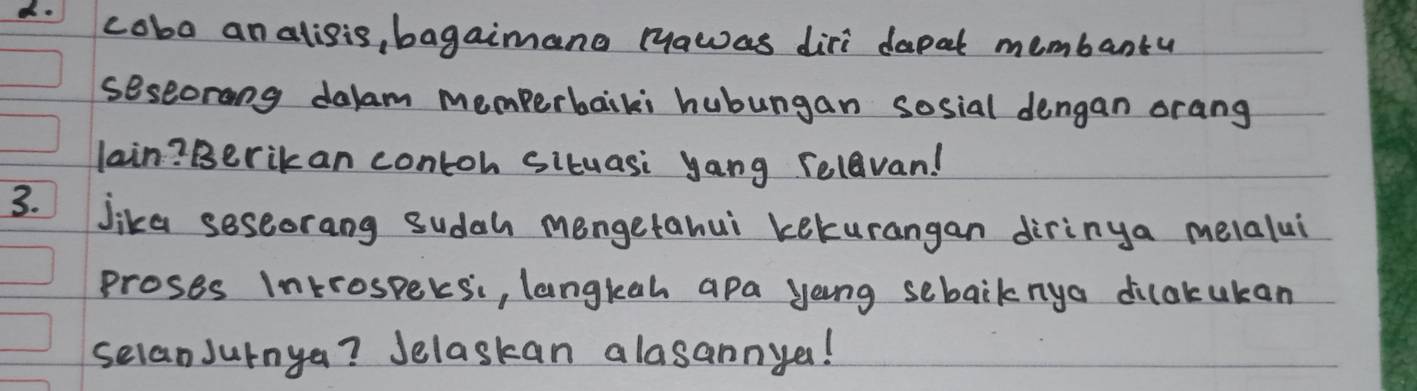 2. coba analisis, bagaimana mawas diri dapat membantu
seseorang dalam memperbaiki hubungan sosial dengan orang
lain? Berikan contoh situasi yang relevan!
3. Jika seseorang sudah mengetahui kekurangan dirinya melalui
proses Introspeksi, langkah apa yang sebaiknya dilakukan
selanjutnya? Jelaskan alasannya!